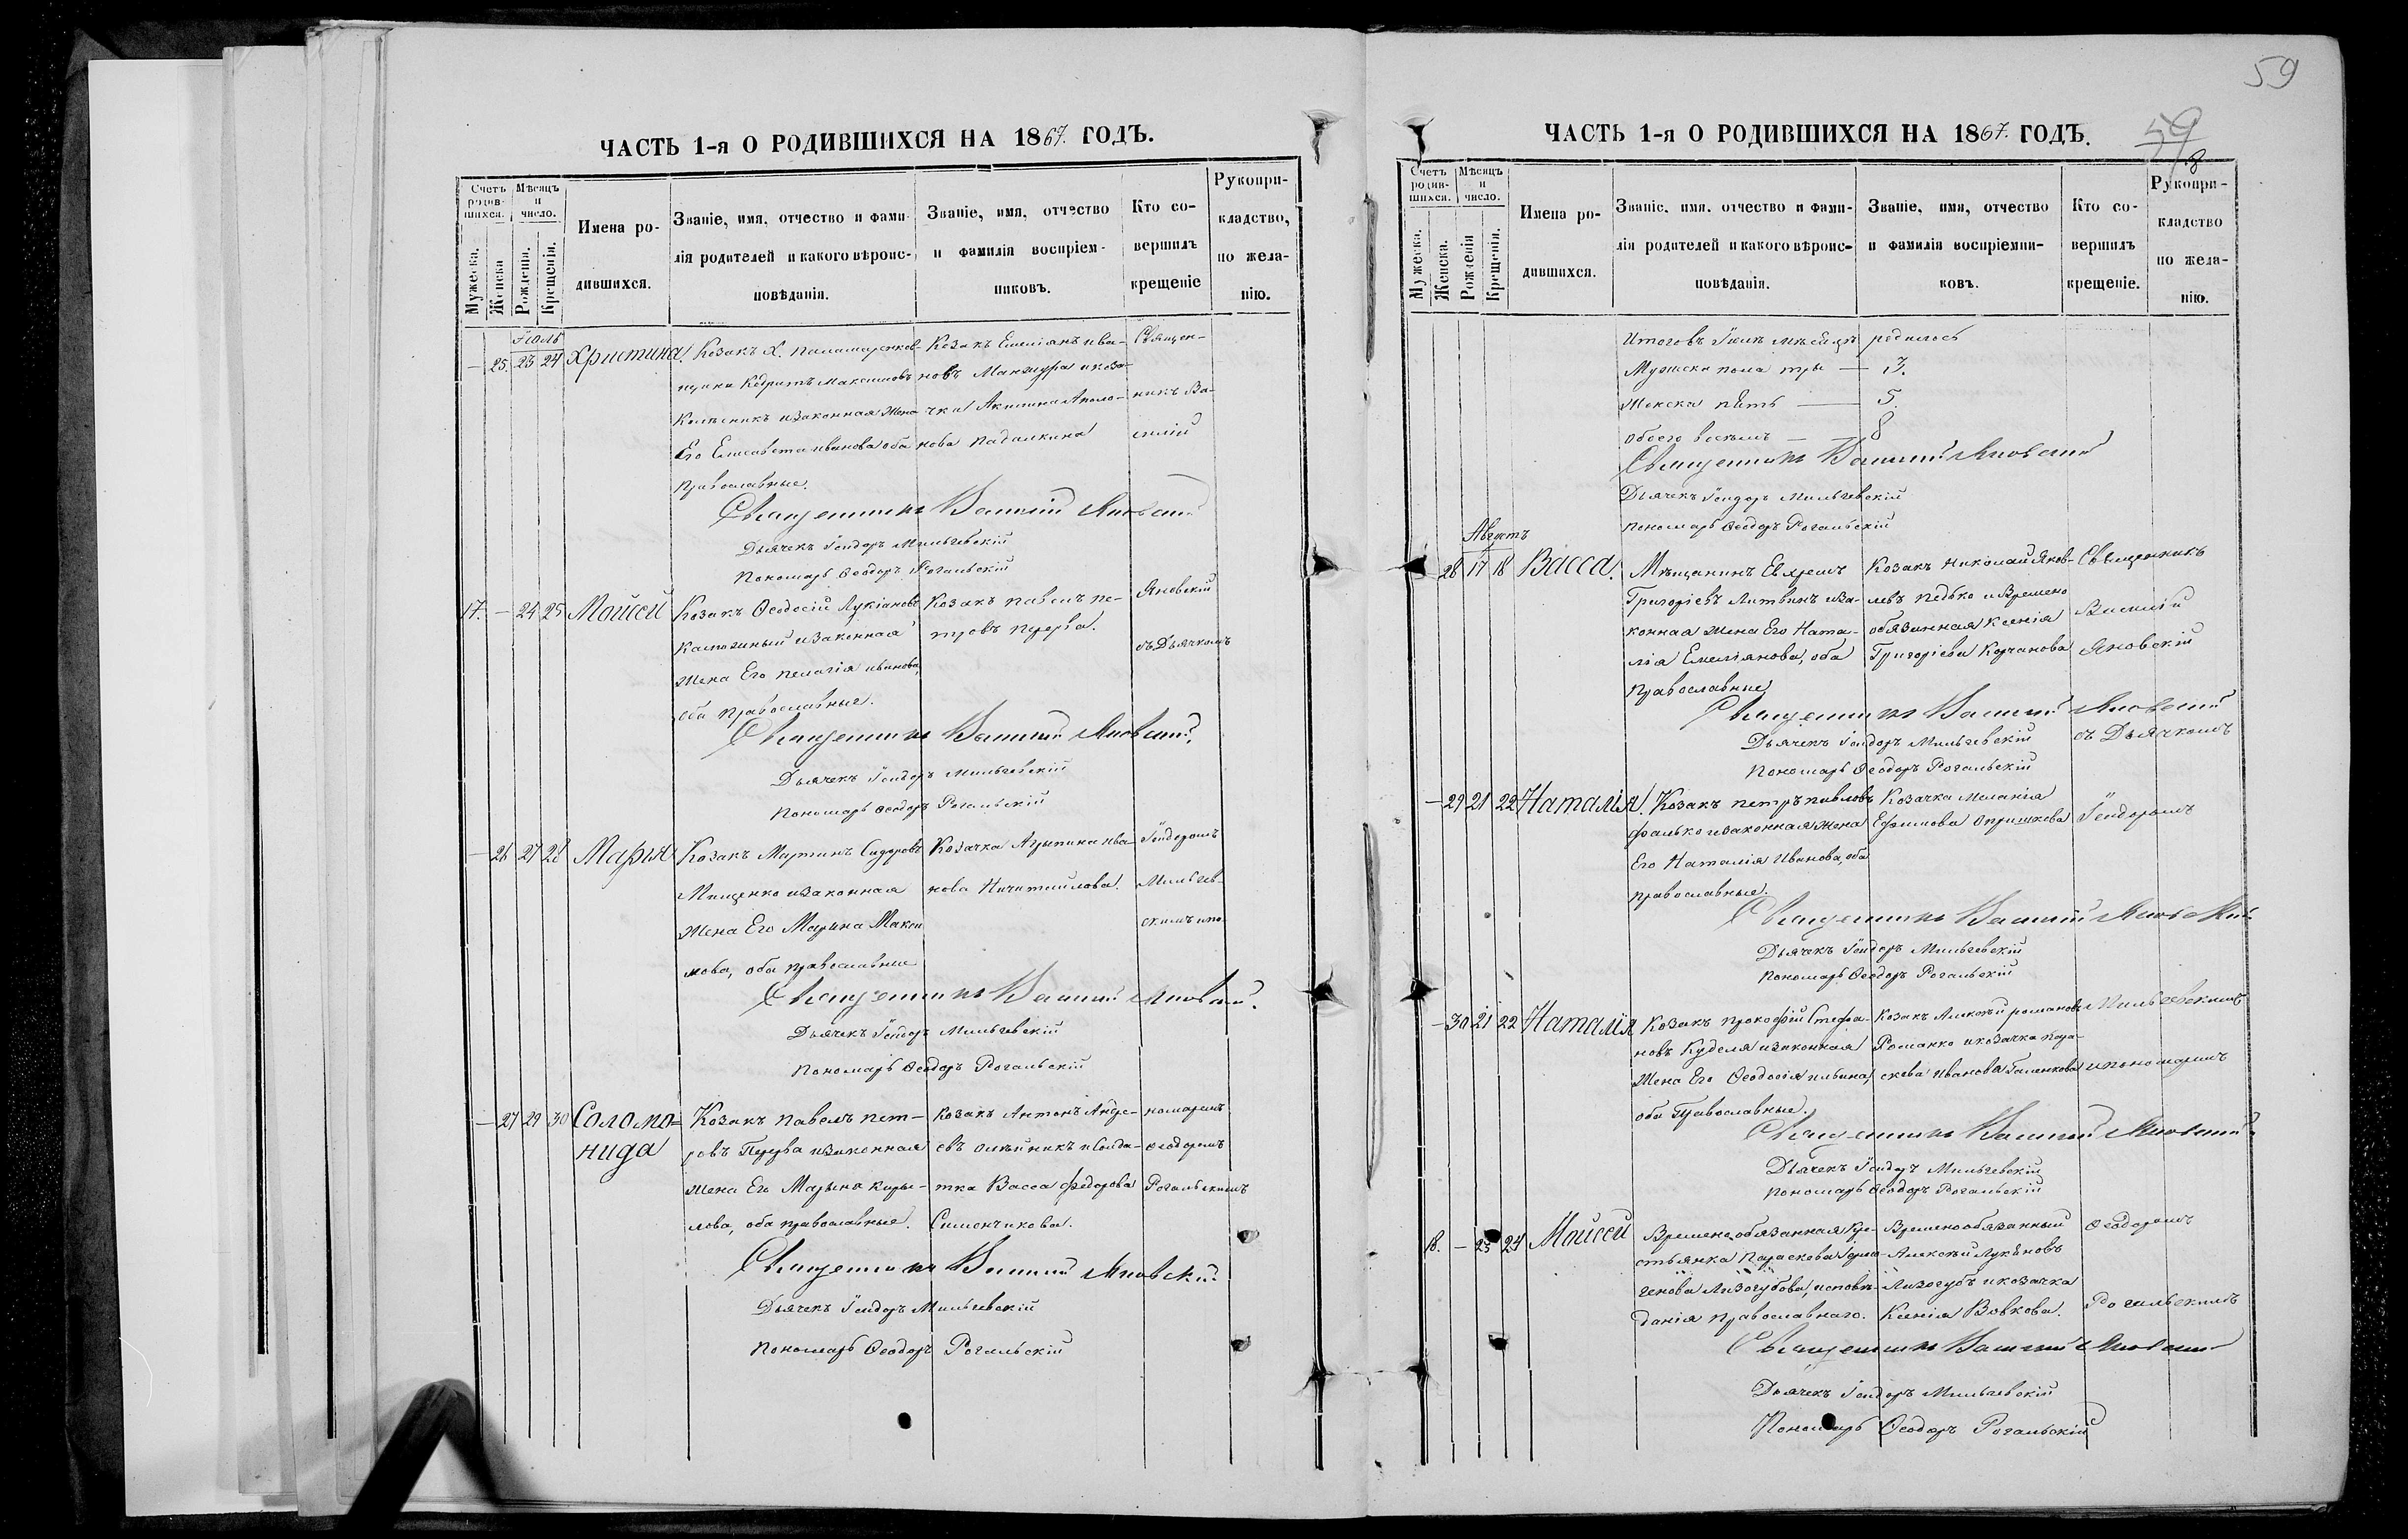 59
ЧАСТЬ 1-я О РОДИВШИХСЯ НА 1867. ГОДЪ.
Счетъ родив-шихся.
Мѣсяцъ и число.
Мужеска.
Женска
Рожденія.
Крещенія.
Имена ро-
дившихся.
Званіе, имя, отчество и фами-
лія родителей и какого вѣроис-
повѣданія.
Званіе, имя, отчество
и фамилія воспріем-
никовъ.
Кто со-
вершилъ
крещеніе
Рукопри-
кладство,
по жела-
нію.
Іюль
— 25. 23 24 Христина.
Козакъ Х.
Максимовъ
и законная жена
Его Елисавета иванова оба
православные.
Козакъ Емиліянъ ива-
новъ и коза-
чка Акилина
нова Падалкина
Священ-
никъ Ва-
силій
Священникъ Василій Яновскій
Дьячекъ Ісидоръ Мильгевскій
Пономарь Ѳеодоръ Рогальскій
17. — 24 25 Мойсей
Козакъ Ѳеодосій Лукіановъ
и законная
жена Его пелагія иванова,
оба православные.
Козакъ павелъ пе-
тровъ перерва.
Яновскій
съ Дьячкомъ
Священникъ Василій Яновскій
Дьячекъ Ісидоръ Мильгевскій
Пономарь Ѳеодоръ Рогальскій
— 26 27 28 Марія
Козакъ Мартинъ Сидоровъ
Мищенко и законная
жена Его Марина Макси
мова, оба православные
Козачка Агрипина ива-
нова Ничипийлова.
Ісидоромъ
Мильгев-
скимъ и по-
Священникъ Василій Яновскій.
Дьячекъ Ісидоръ Мильгевскій
Пономарь Ѳеодоръ Рогальскій
— 27 29 30 Соломо=
нида
Козакъ павелъ пет-
ровъ Перерва и законная
жена Его Марына Киры-
лова, оба православные.
Козакъ Антонъ Андре-
евъ олейникъ и Солда-
тка Васса федорова
Сименчикова.
номаремъ
Ѳеодоромъ
Рогальскимъ
Священникъ Василій Яновскій
Дьячекъ Ісидоръ Мильгевскій
Пономарь Ѳеодоръ Рогальскій
ЧАСТЬ 1-я О РОДИВШИХСЯ НА 1867. ГОДЪ.
59
8
Счетъ родив-шихся.
Мѣсяцъ и число.
Мужеска.
Женска.
Рожденія
Крещенія.
Имена ро-
дившихся.
Званіе, имя, отчество и фами-
лія родителей и какого вѣроис-
повѣданія.
Званіе, имя, отчество
и фамилія воспріемни-
ковъ.
Кто со-
вершилъ
крещеніе.
Рукопри-
кладство
по жела-
нію.
Итогов Іюль мѣсяцъ родилось
Мужска пола три — 3.
Женска пять — 5.
Обоего восемь — 8
Священникъ Василій Яновскій
Дьячекъ Ісидоръ Мильгевскій
Пономарь Ѳеодоръ Рогальскій
Августъ
28 17 18 Васса.
Мѣщанинъ Евфремъ
Григоріевъ Литвинъ и за-
конная жена Его Ната-
лія Емеліянова, оба
православные
Козакъ Николай Яков-
левъ педько и Времено
обязанная Ксенія
Григоріева Корчанова
Священникъ
Василій
Яновскій
съ Дьячкомъ
Священникъ Василій Яновскій
Дьячекъ Ісидоръ Мильгевскій
Пономарь Ѳеодоръ Рогальскій
— 29 21 22 Наталія.
Козакъ петръ павловъ
фалько и законная жена
Его Наталія Иванова, оба
православные.
Козачка Меланія
Ефимова Опришкова
Ісидоромъ
Священникъ Василій Яновскій
Дьячекъ Ісидоръ Мильгевскій
Пономарь Ѳеодоръ Рогальскій
— 30 21 22 Наталія
Козакъ прокофій Стефа-
новъ Куделя и законная
жена Его Ѳеодосія ильина,
оба Православные.
Козакъ Алексѣй романовъ
Романко и козачка пара-
скева Иванова Галенкова
Мильгевскимъ
и пономаремъ
Священникъ Василій Яновскій
Дьячекъ Ісидоръ Мильгевскій
Пономарь Ѳеодоръ Рогальскій
18. — 23 24 Мойсей
Временообязанная Кре-
стьянка Параскева Ерма-
генова Лизогубова, исповѣ-
данія православнаго.
Временообязанный
Алексѣй Лукяновъ
Лизогубъ и козачка
Ксенія Вовкова.
Ѳеодоромъ
Рогальскимъ
Священникъ Василій Яновскій
Дьячекъ Ісидоръ Мильгевскій
Пономарь Ѳеодоръ Рогальскій